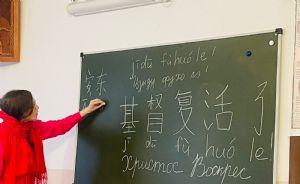 jīdū fùhuó le!
安东
基督复活了
jī dū fù huó le!
Христос Воскрес